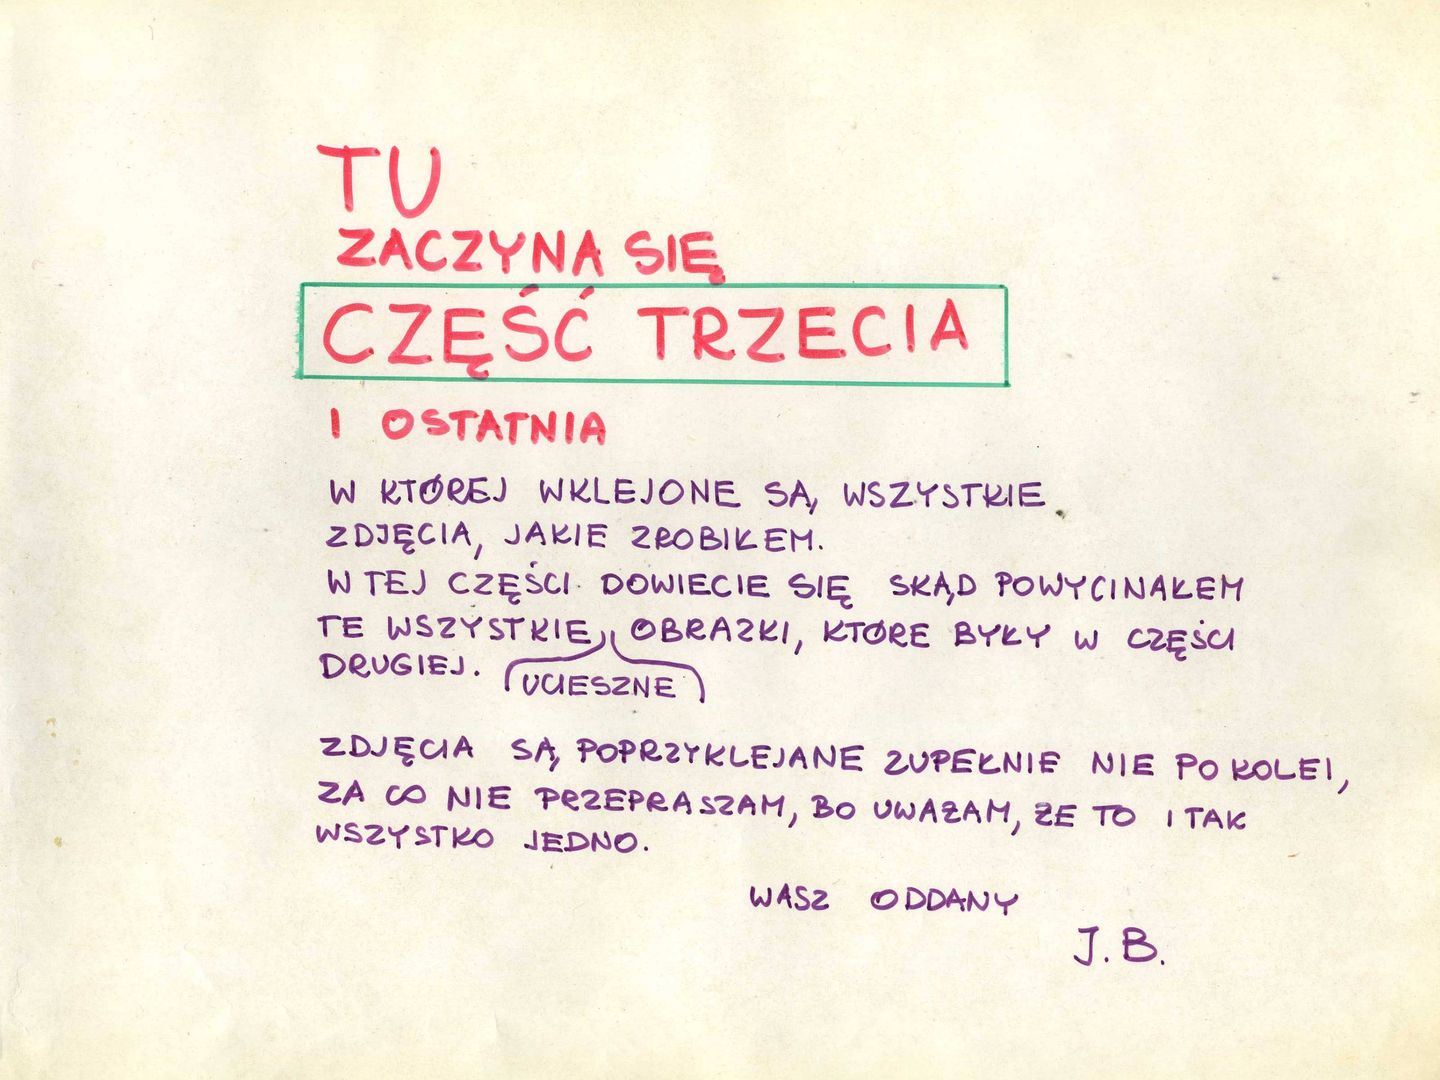 TU
ZACZYNA SIĘ
CZĘŚĆ TRZECIA
I OSTATNIA
W KTÓREJ WKLEJONE SĄ WSZYSTKIE
ZDJĘCIA, JAKIE ZROBIŁEM.
W TEJ CZĘŚCI DOWIECIE SIĘ SKĄD POWYCINAŁEM
TE WSZYSTKIE OBRAZKI, KTÓRE BYŁY W CZĘŚCI
DRUGIEJ. UCIESZNE
ZDJĘCIA SĄ POPRZYKLEJANE ZUPEŁNIE NIE PO KOLEI,
ZA CO NIE PRZEPRASZAM, BO UWAŻAM, ŻE TO I TAK
WSZYSTKO JEDNO.
WASZ ODDANY
J. B.